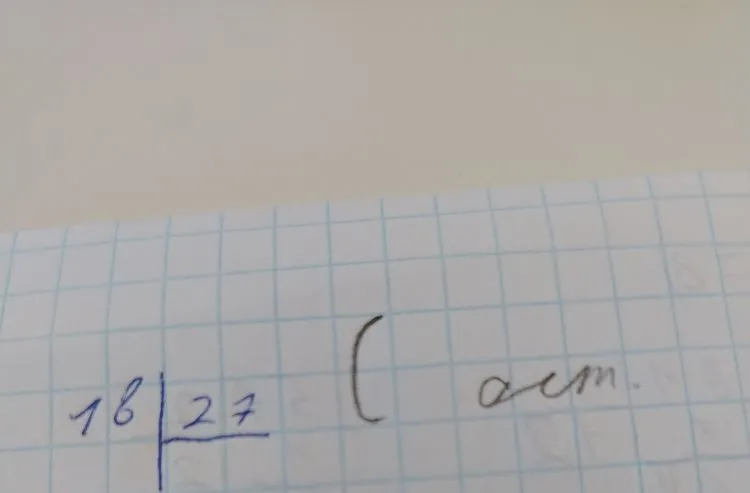 18 27 ( ост.